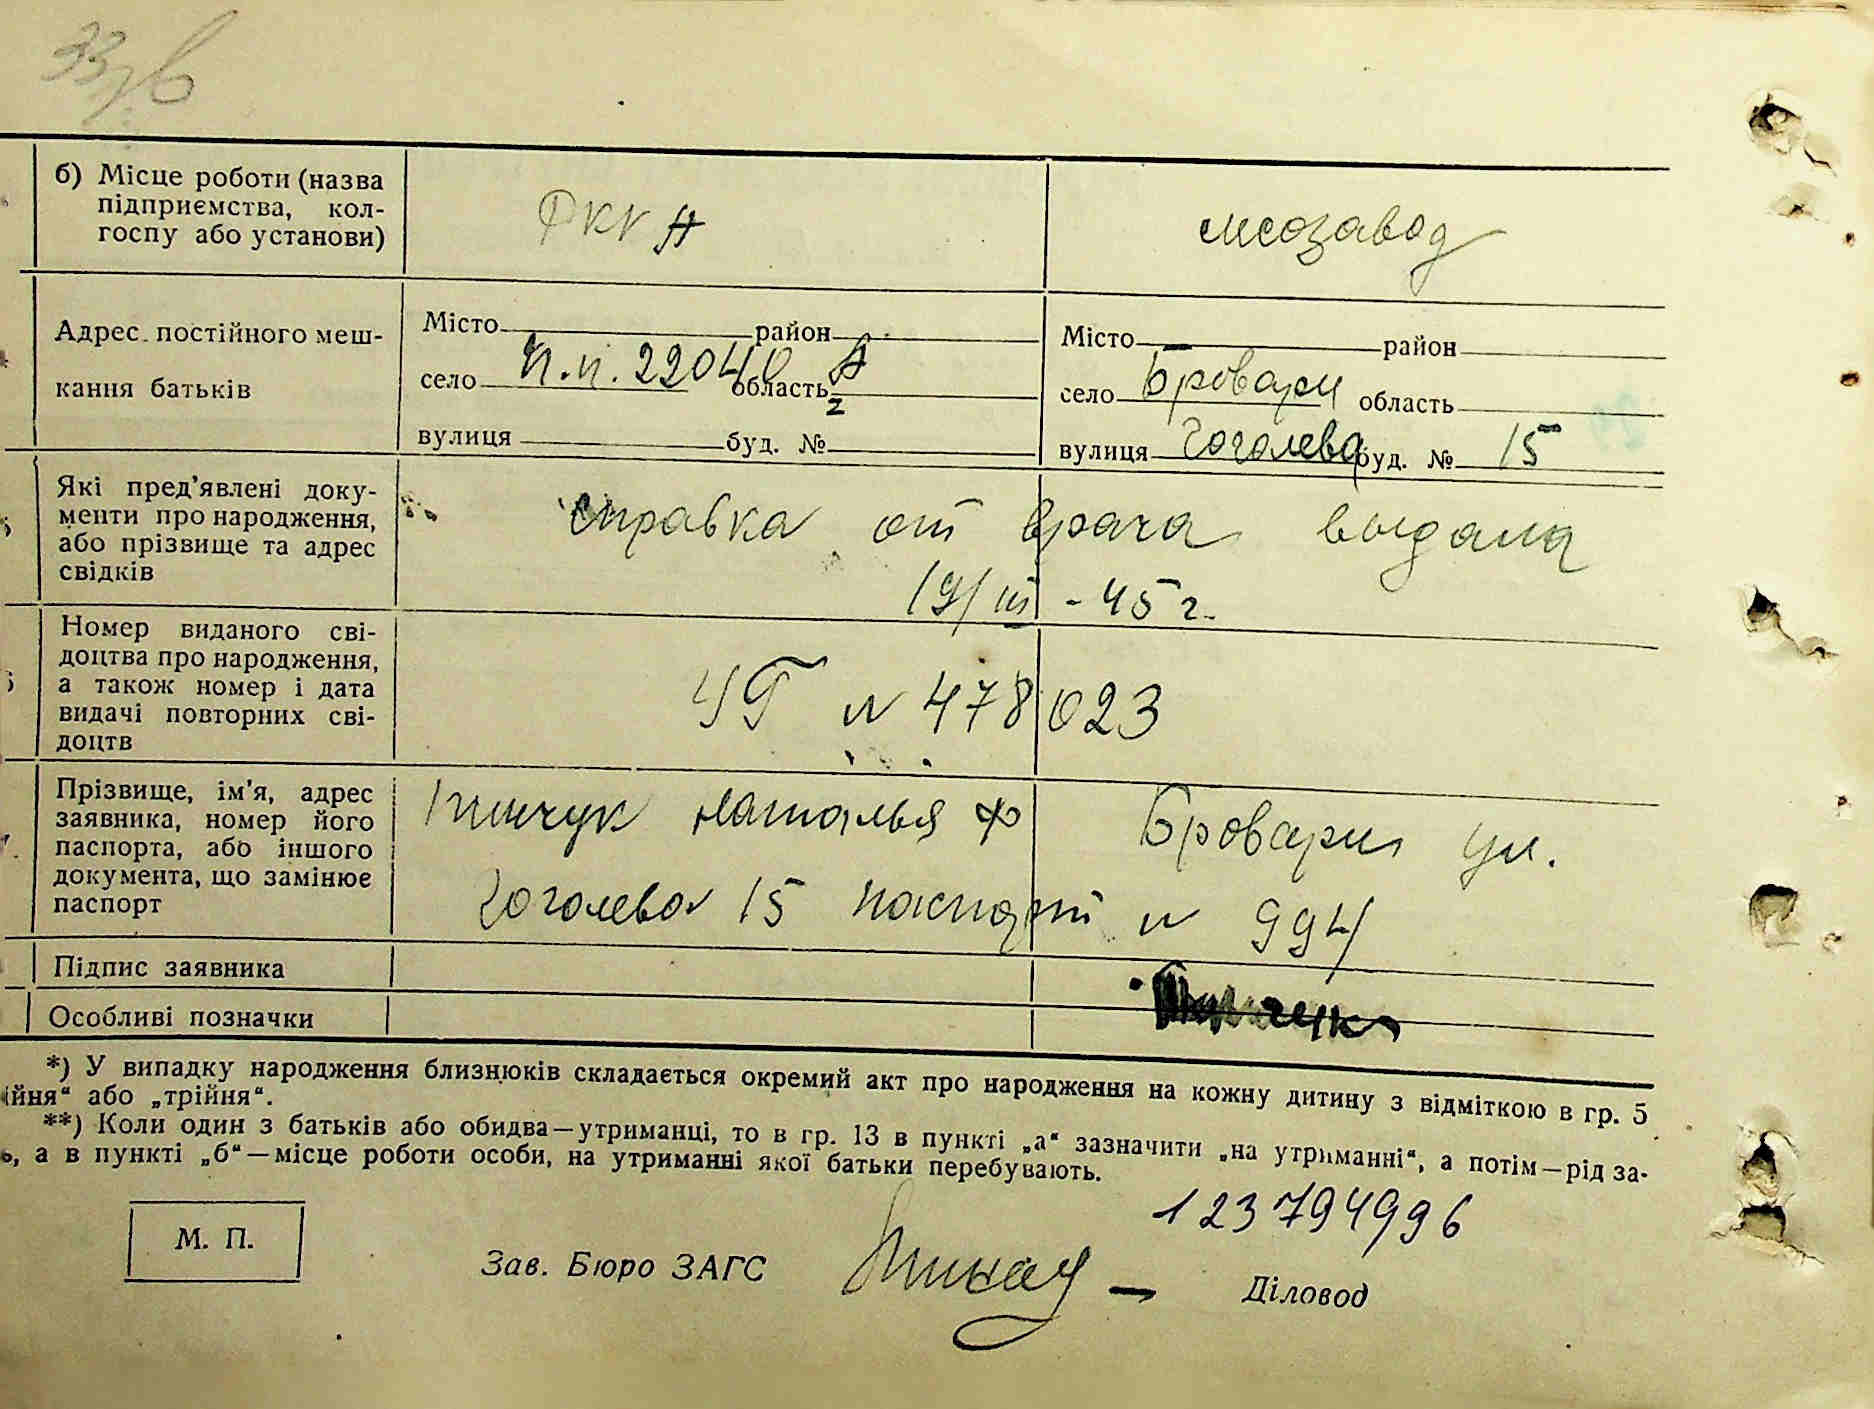 33/в
б) Місце роботи (назва
підприємства, кол-
госпу або установи)
РККА
мсозавод
Адрес постійного меш-
кання батьків
Місто район
п.п. 22040 А
село область
г
вулиця буд. №
Місто район
село Бровари область
вулиця Гоголева буд. № 15
Які пред'явлені доку-
менти про народження,
або прізвище та адрес
свідків
справка от врача выдана
19/III - 45 г.
Номер виданого сві-
доцтва про народження,
а також номер і дата
видачі повторних сві-
доцтв
УГ N 478023
Прізвище, ім'я, адрес
заявника, номер його
паспорта, або іншого
документа, що замінює
паспорт
Наталья Ф Бровари ул.
Гоголева 15 паспорт N 994
Підпис заявника
Особливі позначки
*) У випадку народження близнюків складається окремий акт про народження на кожну дитину з відміткою в гр. 5
ійня“ або „трійня“.
**) Коли один з батьків або обидва—утриманці, то в гр. 13 в пункті „а“ зазначити „на утриманні“, а потім—рід за-
ь, а в пункті „б“—місце роботи особи, на утриманні якої батьки перебувають.
123794996
М. П.
Зав. Бюро ЗАГС
Діловод